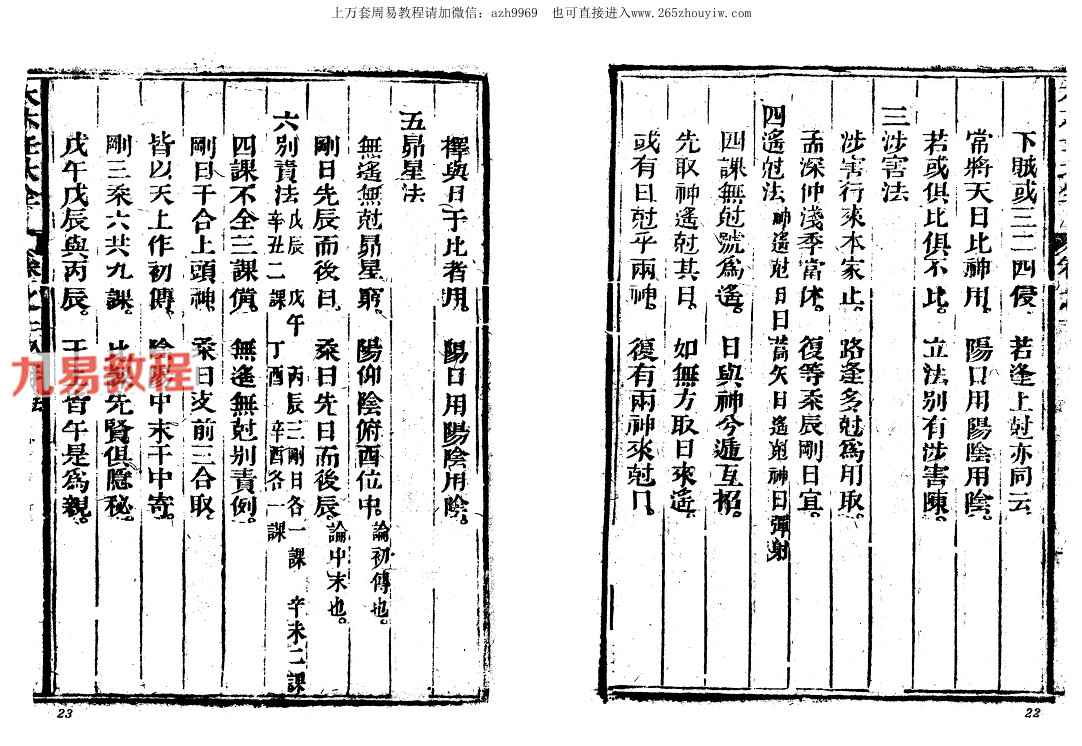 上万套周易教程请加微信：azh9969 也可直接进入www.265zhouyiw.com
下賊或三二四侵。若逢上尅亦同云
常將天日比神用。陽日用陽陰用陰。
若或俱比俱不比。立法別有涉害陳。
三涉害法
涉害行來本家止。路逢多尅爲用取。
孟深仲淺季當休。復等柔辰剛日宜。
四遙尅法 神遙尅日曰蒿矢日遙尅神曰彈射
四課無尅號爲遙。日與神兮遞互招。
先取神遙尅其日。如無方取日來遙。
或有日尅乎兩神。復有兩神來尅日。
擇與日干比者用。陽日用陽陰用陰。
五昴星法
無遙無尅昴星窮。陽仰陰俯酉位中。論初傳也。
剛日先辰而後日。柔日先日而後辰。論中末也。
六別責法 戊辰 戊午 丙辰三剛日各一課 辛未二課
辛丑二課 丁酉 辛酉各一課
四課不全三課備。無遙無尅別責例。
剛日干合上頭神。柔日支前三合取。
皆以天上作初傳。陰陽中末干中寄。
剛三柔六共九課。比課先賢俱隱秘。
戊午戊辰與丙辰。干上皆午是爲親。
九易教程
23
22